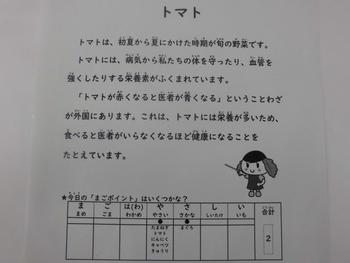 トマト
トマトは、初夏から夏にかけた時期が旬の野菜です。
トマトには、病気から私たちの体を守ったり、血管を
強くしたりする栄養素がふくまれています。
「トマトが赤くなると医者が青くなる」ということわざ
が外国にあります。これは、トマトには栄養が多いため、
食べると医者がいらなくなるほど健康になることを
たとえています。
★今日の「まごポイント」はいくつかな?
ま ご は(わ) や さ し い 合計
まめ ごま わかめ やさい さかな しいたけ いも
● ●
たまねぎ まぐろ 2
トマト
にんにく
キャベツ
きゅうり